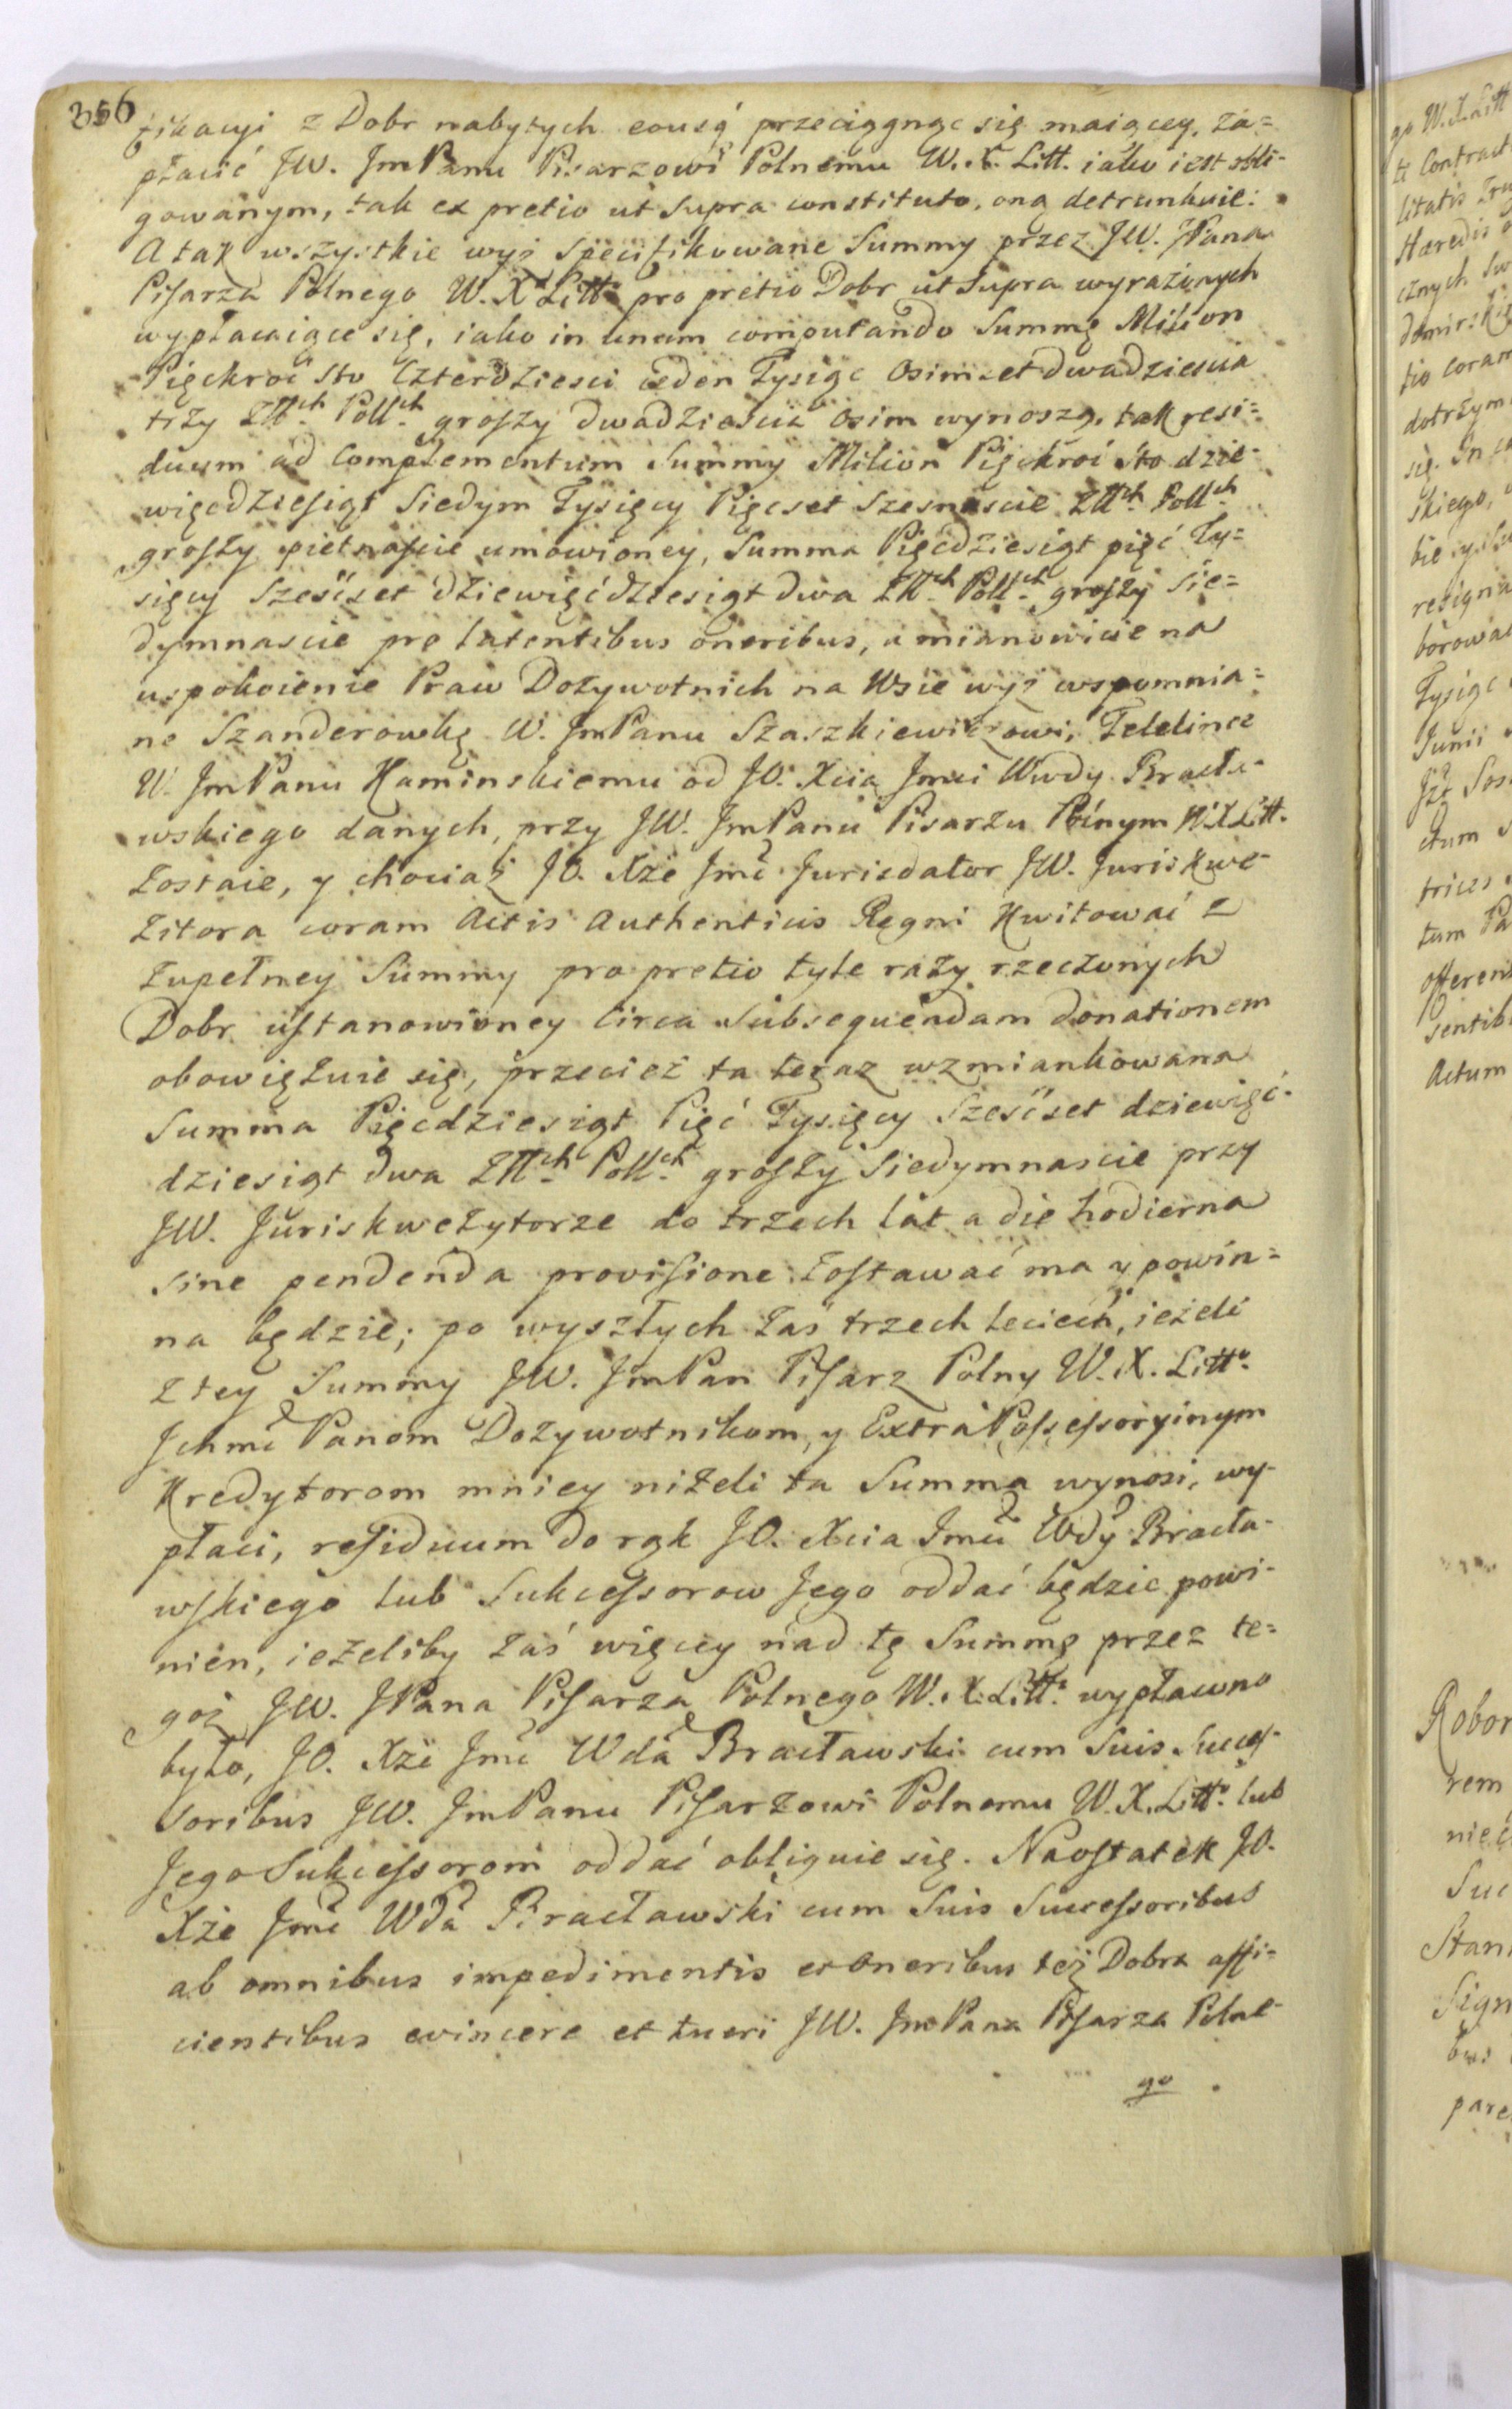 356
fikacyi z Dobr nabytych eousq przeciągnąc się maiącey, za=
płacić JW. JmPanu Pisarzowi Polnemu W. X. Litt. iako iest obli-
gowanym, tak ex pretio ut supra constituto, oną detrunkuie:
A tak wszystkie wyż specifikowane Summy przez JW. JPana
Pisarza Polnego W. X. Litto pro pretio Dobr ut supra wyrażonych
wypłacaiące się, iako in unum computando Summę Milion
Pięckroć sto Czterdziesci ieden Tysiąc Osimset dwadziescia
trzy Złłch Pollch groszy dwadziescia osim wynoszą, tak resi=
duum ad Complementum Summy Milion Pięckroć Sto dzie-
więcdziesiąt Siedym Tysięcy Pięcset Szesnascie Złłch Pollch
groszy pietnascie umowioney, Summa Pięcdziesiąt pięć Ty=
sięcy Szesćset dziewięćdziesiąt dwa Złłch Pollch groszy Sie=
dymnascie pro latentibus oneribus, a mianowicie na
uspokoienie Praw Dożywotnich na Wsie wyż wspomnia=
ne Szanderowkę W. JmPanu Szaszkiewiczowi, Telelince
W. JmPanu Kaminskiemu od JO. Xcia Jmci Wwdy Bracła-
wskiego danych, przy JW. JmPanu Pisarzu Polnym W. X. Litt.
zostaie, y chociaż JO. Xże Jmć Jurisdator JW. Juriskwe-
zitora coram Actis Authenticis Regni Kwitować z
zupełney Summy pro pretio tyle razy rzeczonych
Dobr ustanowioney Circa Subsequendam donationem
obowięzuie się, przecież ta teraz wzmiankowana
Summa Pięcdziesiąt Pięć Tysięcy Szesćset dziewięć-
dziesiąt dwa Złłch Pollch groszy Siedymnascie przy
JW. Juriskwezytorze do trzech lat a die hodierna
sine pendenda provisione zostawać ma y powin=
na będzie; po wyszłych zaś trzech leciech, ieżeli
z tey Summy JW. JmPan Pisarz Polny W. X. Litto
Jchmć Panom Dożywotnikom, y Extra Possessoryinym
Kredytorom mniey niżeli ta Summa wynosi, wy-
płaci, residuum do rąk JO. Xcia Jmci Wdy Bracła-
wskiego lub Sukcessorow Jego oddać będzie powi-
nien, ieżeliby zaś więcey nad tę Summę przez te=
goż JW. JPana Pisarza Polnego W. X. Litt. wypłacono
było, JO. Xże Jmć Wda Bracławski cum Suis Succes-
soribus JW. JmPanu Pisarzowi Polnemu W. X. Litto lub
Jego Sukcessorom oddać obliguie się. Naostatek JO.
Xże Jmć Wda Bracławski cum Suis Successoribus
ab omnibus impedimentis et oneribus też Dobra affi=
cientibus evincere et tueri JW. JmPana Pisarza Polne-
go
go W. X. Litt
litatis
Hæredis
tio coram
dotrzym
się.
skiego,
resigna
Tysiąc
Junii
trices
tum
offerend
sentib
Actum
Robor
rem
nieć
Suc
Stan
Sign
pare